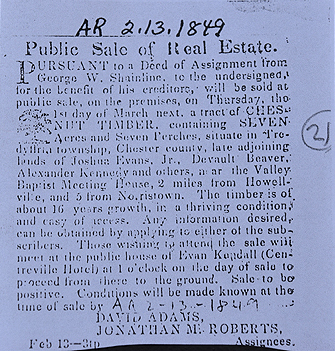 AR 2.13.1849
Public Sale of Real Estate.
PURSUANT to a Deed of Assignment from
George W. Shainline, to the undersigned,
for the benefit of his creditors, will be sold at
public sale, on the premises, on Thursday, the
1st day of March next, a tract of CHES-
NUT TIMBER, containing SEVEN
Acres and Seven Perches, situate in Tre-
dyffrin township, Chester county, late adjoining
lands of Joshua Evans, Jr., Devault Beaver,
Alexander Kennedy and others, near the Valley
Baptist Meeting House, 2 miles from Howell-
ville, and 5 from Norristown. The timber is of
about 16 years growth, in a thriving condition,
and easy of access. Any information desired,
can be obtained by applying to either of the sub-
scribers. Those wishing to attend the sale will
meet at the public house of Evan Kendall (Cen-
treville Hotel) at 1 o'clock on the day of sale to
proceed from there to the ground. Sale to be
positive. Conditions will be made known at the
time of sale by AR 2-13-1849
DAVID ADAMS,
JONATHAN M. ROBERTS,
Feb 13—3tp Assignees.
21